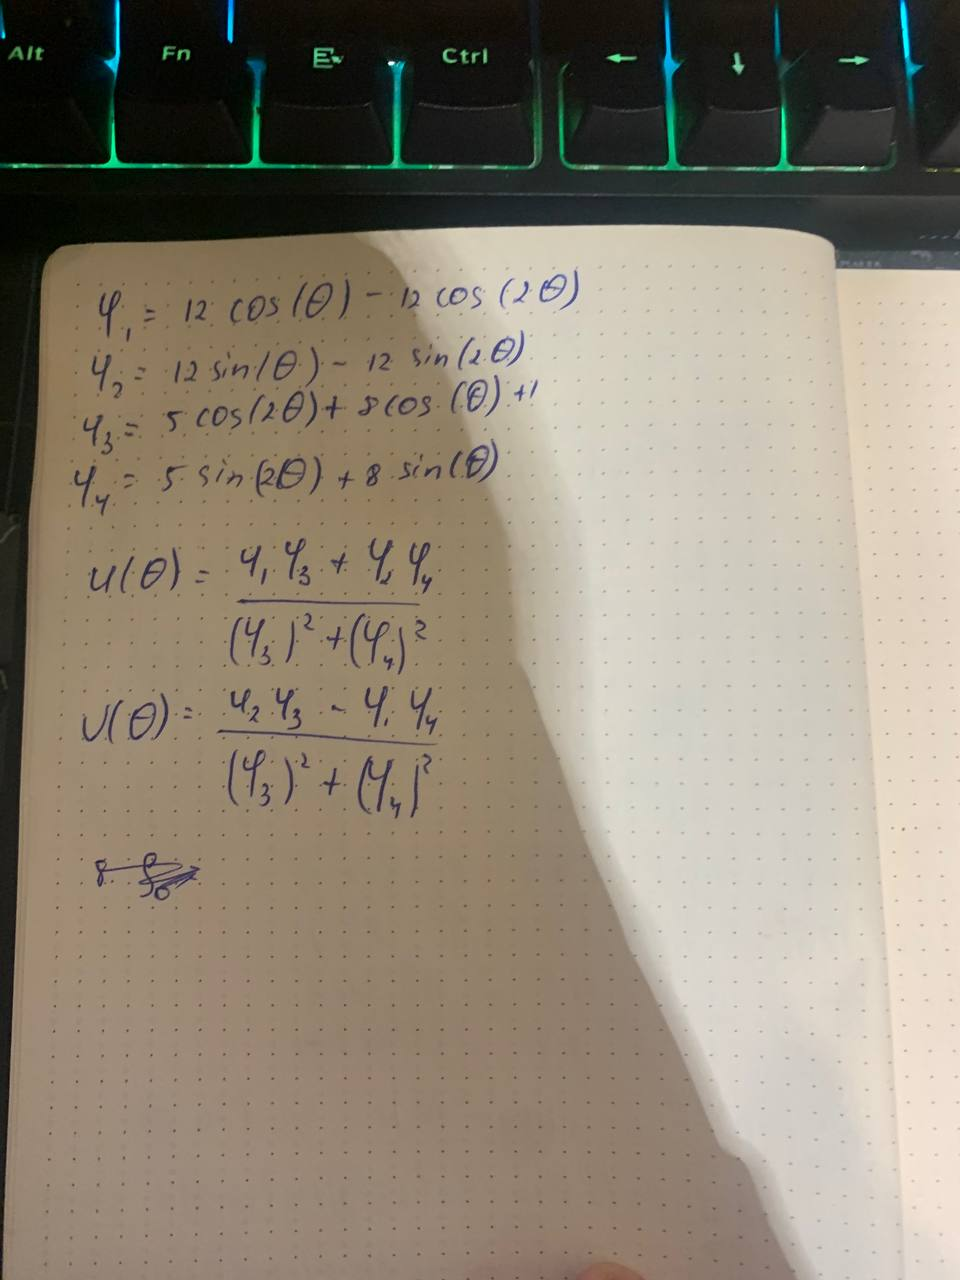 Alt Fn Ctrl ← ↓ →
φ₁ = 12 cos(θ) - 12 cos(2θ)
φ₂ = 12 sin(θ) - 12 sin(2θ)
φ₃ = 5 cos(2θ) + 8 cos(θ) +1
φ₄ = 5 sin(2θ) + 8 sin(θ)
u(θ) = (φ₁ φ₃ + φ₂ φ₄) / ((φ₃)² + (φ₄)²)
v(θ) = (φ₂ φ₃ - φ₁ φ₄) / ((φ₃)² + (φ₄)²)